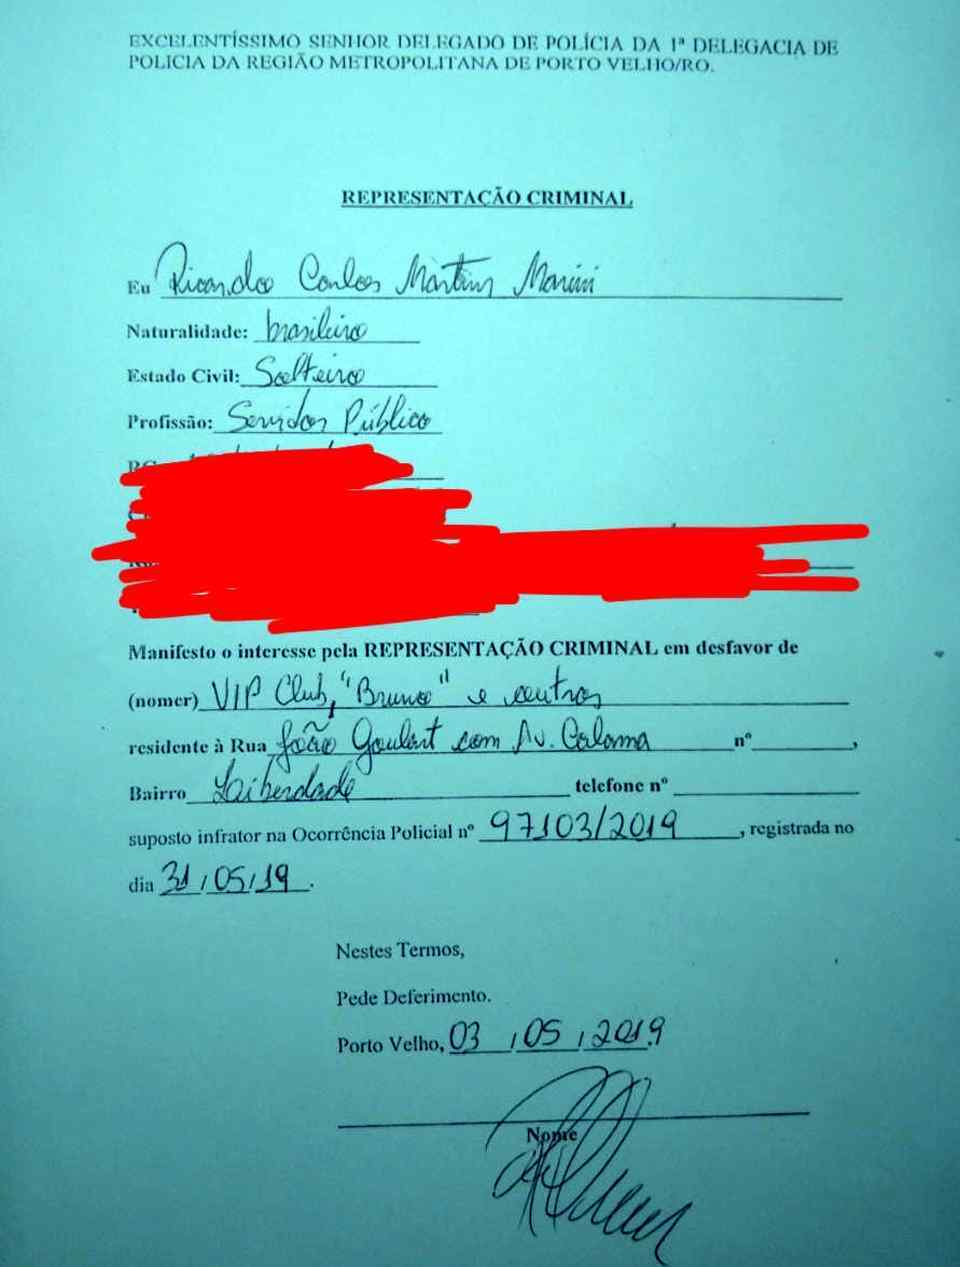 EXCELENTÍSSIMO SENHOR DELEGADO DE POLÍCIA DA 1ª DELEGACIA DE
POLICIA DA REGIÃO METROPOLITANA DE PORTO VELHO/RO.
REPRESENTAÇÃO CRIMINAL
Eu Ricardo Carlos Martins
Naturalidade: brasileiro
Estado Civil: Solteiro
Profissão: Servidor Público
Manifesto o interesse pela REPRESENTAÇÃO CRIMINAL em desfavor de
(nomer) VIP Club, "Bruno" e outros
residente à Rua João Goulart com Av. Calama nº ,
Bairro Liberdade telefone nº
suposto infrator na Ocorrência Policial nº 97103/2019, registrada no
dia 31/05/19.
Nestes Termos,
Pede Deferimento.
Porto Velho, 03/05/2019
Nome